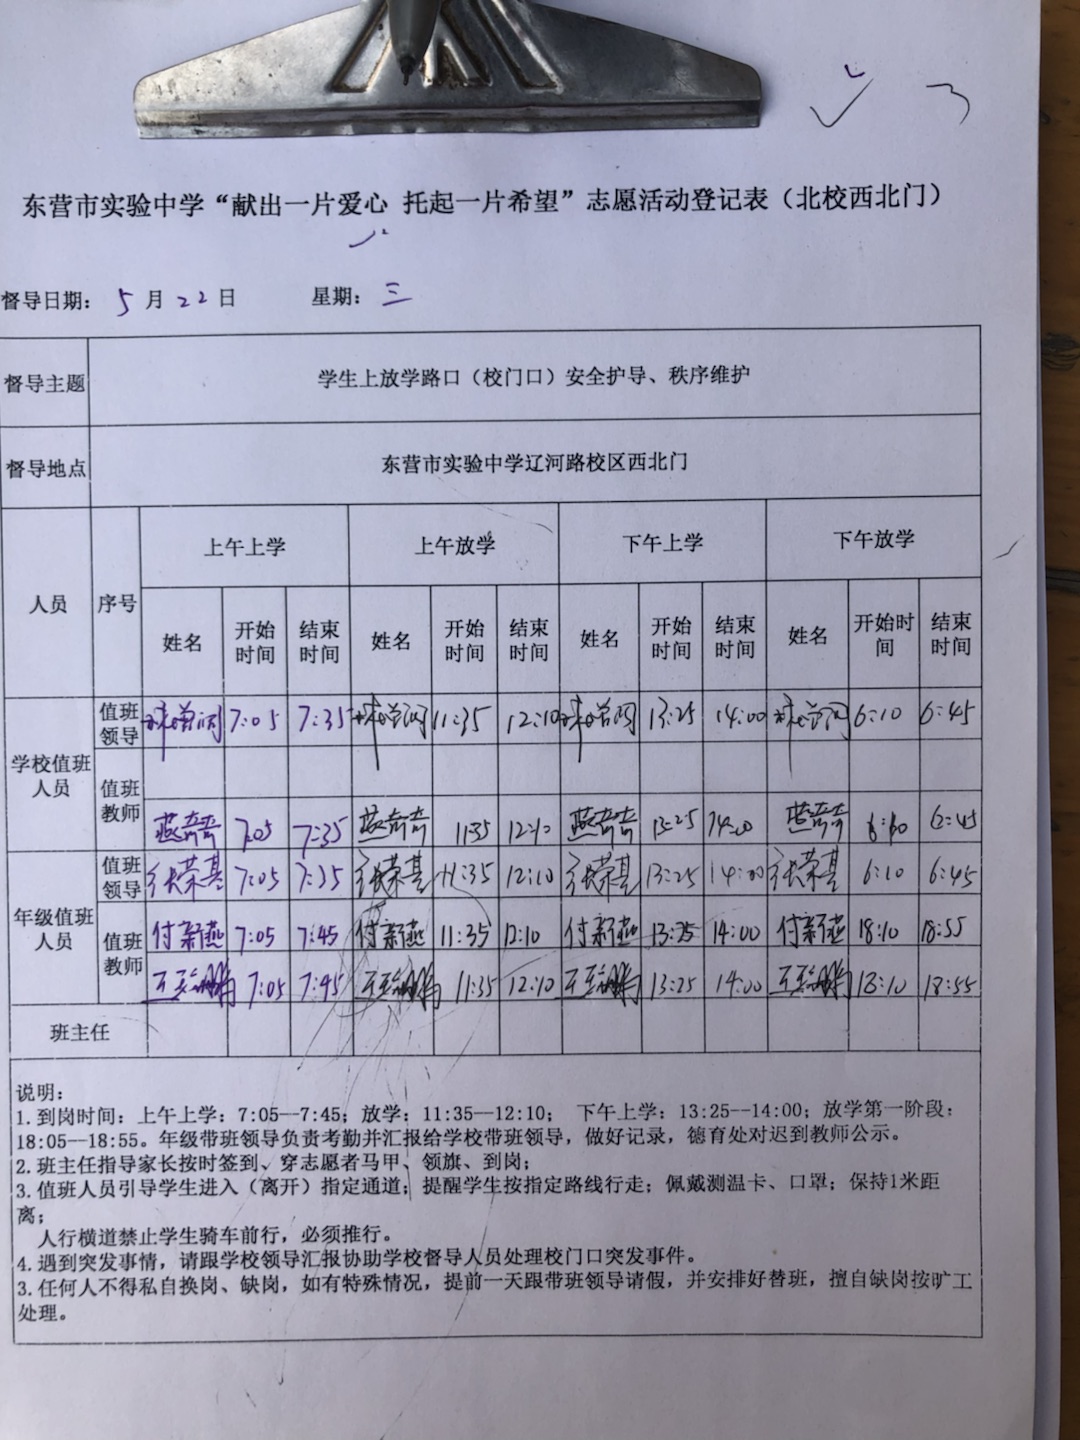 东营市实验中学“献出一片爱心 托起一片希望”志愿活动登记表（北校西北门）
督导日期： 5 月 22 日 星期： 三
督导主题 学生上放学路口（校门口）安全护导、秩序维护
督导地点 东营市实验中学辽河路校区西北门
人员 序号 上午上学 上午放学 下午上学 下午放学
姓名 开始时间 结束时间 姓名 开始时间 结束时间 姓名 开始时间 结束时间 姓名 开始时间 结束时间
学校值班人员 值班领导 7:05 7:35 11:35 12:10 13:25 14:00 6:10 6:45
值班教师
燕奇奇 7:05 7:35 燕奇奇 11:35 12:10 燕奇奇 13:25 14:00 燕奇奇 6:10 6:45
年级值班人员 值班领导 张荣基 7:05 7:35 张荣基 11:35 12:10 张荣基 13:25 14:00 张荣基 6:10 6:45
值班教师 付新燕 7:05 7:45 付新燕 11:35 12:10 付新燕 13:25 14:00 付新燕 18:10 18:55
7:05 7:45 11:35 12:10 13:25 14:00 18:10 18:55
班主任
说明：
1.到岗时间：上午上学：7:05--7:45；放学：11:35--12:10； 下午上学：13:25--14:00；放学第一阶段：
18:05--18:55。年级带班领导负责考勤并汇报给学校带班领导，做好记录，德育处对迟到教师公示。
2.班主任指导家长按时签到、穿志愿者马甲、领旗、到岗；
3.值班人员引导学生进入（离开）指定通道；提醒学生按指定路线行走；佩戴测温卡、口罩；保持1米距
离；
人行横道禁止学生骑车前行，必须推行。
4.遇到突发事情，请跟学校领导汇报协助学校督导人员处理校门口突发事件。
3.任何人不得私自换岗、缺岗，如有特殊情况，提前一天跟带班领导请假，并安排好替班，擅自缺岗按旷工
处理。